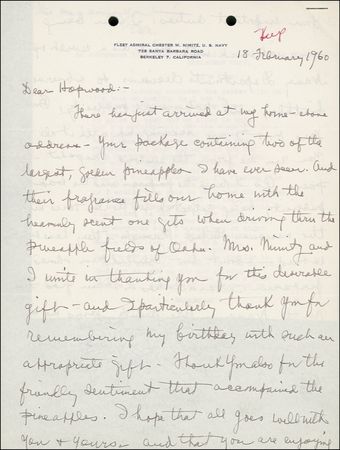 Keep
FLEET ADMIRAL CHESTER W. NIMITZ, U. S. NAVY
728 SANTA BARBARA ROAD
BERKELEY 7, CALIFORNIA
18 February 1960
Dear Hopwood:-
There has just arrived at my home - above
address - Your package containing two of the
largest, golden pineapples I have ever seen. And
their fragrance fills our home with the
heavenly scent one gets when driving thru the
pineapple fields of Oahu. Mrs. Nimitz and
I unite in thanking you for this desirable
gift - and I particularly thank you for
remembering my birthday with such an
appropriate gift - Thank you also for the
friendly sentiment that accompanied the
pineapples. I hope that all goes well with
you & yours - and that you are enjoying